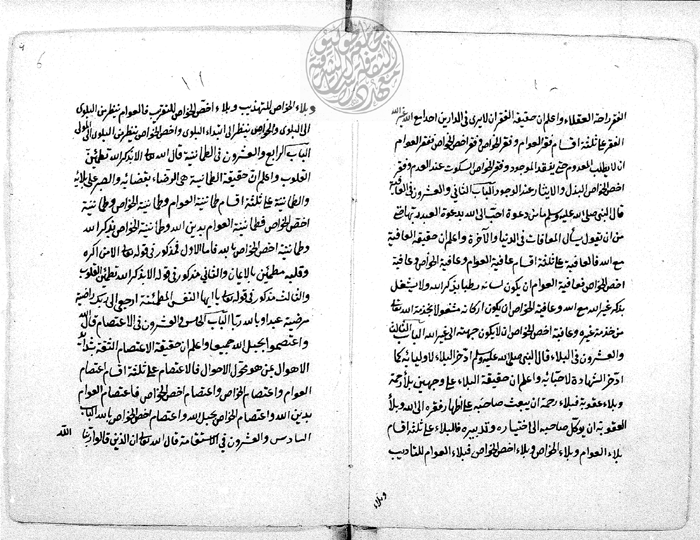 الفقر راحة العقلاء واعلم ان حقيقة الفقر ان لا يرى في الدارين احد مع الله غير الله
الفقر على ثلثة اقسام فقر العوام وفقر الخواص وفقر اخص الخواص ففقر العوام
ان لا يطلب المعدوم حتى يفقد الموجود وفقر الخواص السكوت عند العدم وفقر
اخص الخواص البذل والايثار عند الوجود الباب الثاني والعشرون في العافية
قال النبي صلى الله عليه وسلم ما من دعوة احب الى الله يدعوه العبد بها
من ان يقول يسأل المعافات في الدنيا والآخرة واعلم ان حقيقة العافية
مع الله فالعافية على ثلثة اقسام عافية العوام وعافية الخواص وعافية
اخص الخواص فعافية العوام ان يكون لسانه رطبا بذكر الله ولا يشغل
بذكر غير الله مع الله وعافية الخواص ان يكون اركانه مشغولا بخدمة الله
من خدمة غيره وعافية اخص الخواص ان لا يكون جهته الى غير الله الباب الثالث
والعشرون في البلاء قال النبي صلى الله عليه وسلم ادخر البلاء لاوليائه كما
ادخر الشهادة لاحبائه واعلم ان حقيقة البلاء على وجهين بلاء رحمة
وبلاء عقوبة فبلاء رحمة ان يبعث صاحبه على اظهار فقره الى الله وبلاء
العقوبة ان يوكل صاحبه الى اختياره وتدبيره فالبلاء على ثلثة اقسام
بلاء العوام وبلاء الخواص وبلاء اخص الخواص فبلاء العوام للتاديب
وبلاء
١٠
١١
وبلاء الخواص للتهذيب وبلاء اخص الخواص للتقرب فالعوام ينظر من البلوى
الى البلوى والخواص ينظر الى ابتداء البلوى واخص الخواص ينظر من البلوى الى المولى
الباب الرابع والعشرون في الطمانية قال الله تعالى الا بذكر الله تطمئن
القلوب واعلم ان حقيقة الطمانية هي الرضاء بقضائه والصبر على بلائه
والطمانية على ثلثة اقسام طمانية العوام وطمانية الخواص وطمانية
اخص الخواص فطمانية العوام بدين الله وطمانية الخواص بذكر الله
وطمانية اخص الخواص بالله فاما الاول فمذكور في قوله تعالى الا من اكره
وقلبه مطمئن بالايمان والثاني مذكور في قوله الا بذكر الله تطمئن القلوب
والثالث مذكور في قوله تعالى يا ايها النفس المطمئنة ارجعي الى ربك راضية
مرضية الباب الخامس والعشرون في الاعتصام قال الله
واعتصموا بحبل الله جميعا واعلم ان حقيقة الاعتصام الثقة
الاحوال عن هو محول الاحوال فالاعتصام على ثلثة اقسام اعتصام
العوام واعتصام الخواص واعتصام اخص الخواص فاعتصام العوام
بدين الله واعتصام الخواص بحبل الله واعتصام اخص الخواص بالله الباب
السادس والعشرون في الاستقامة قال الله تعالى ان الذين قالوا ربنا
الله